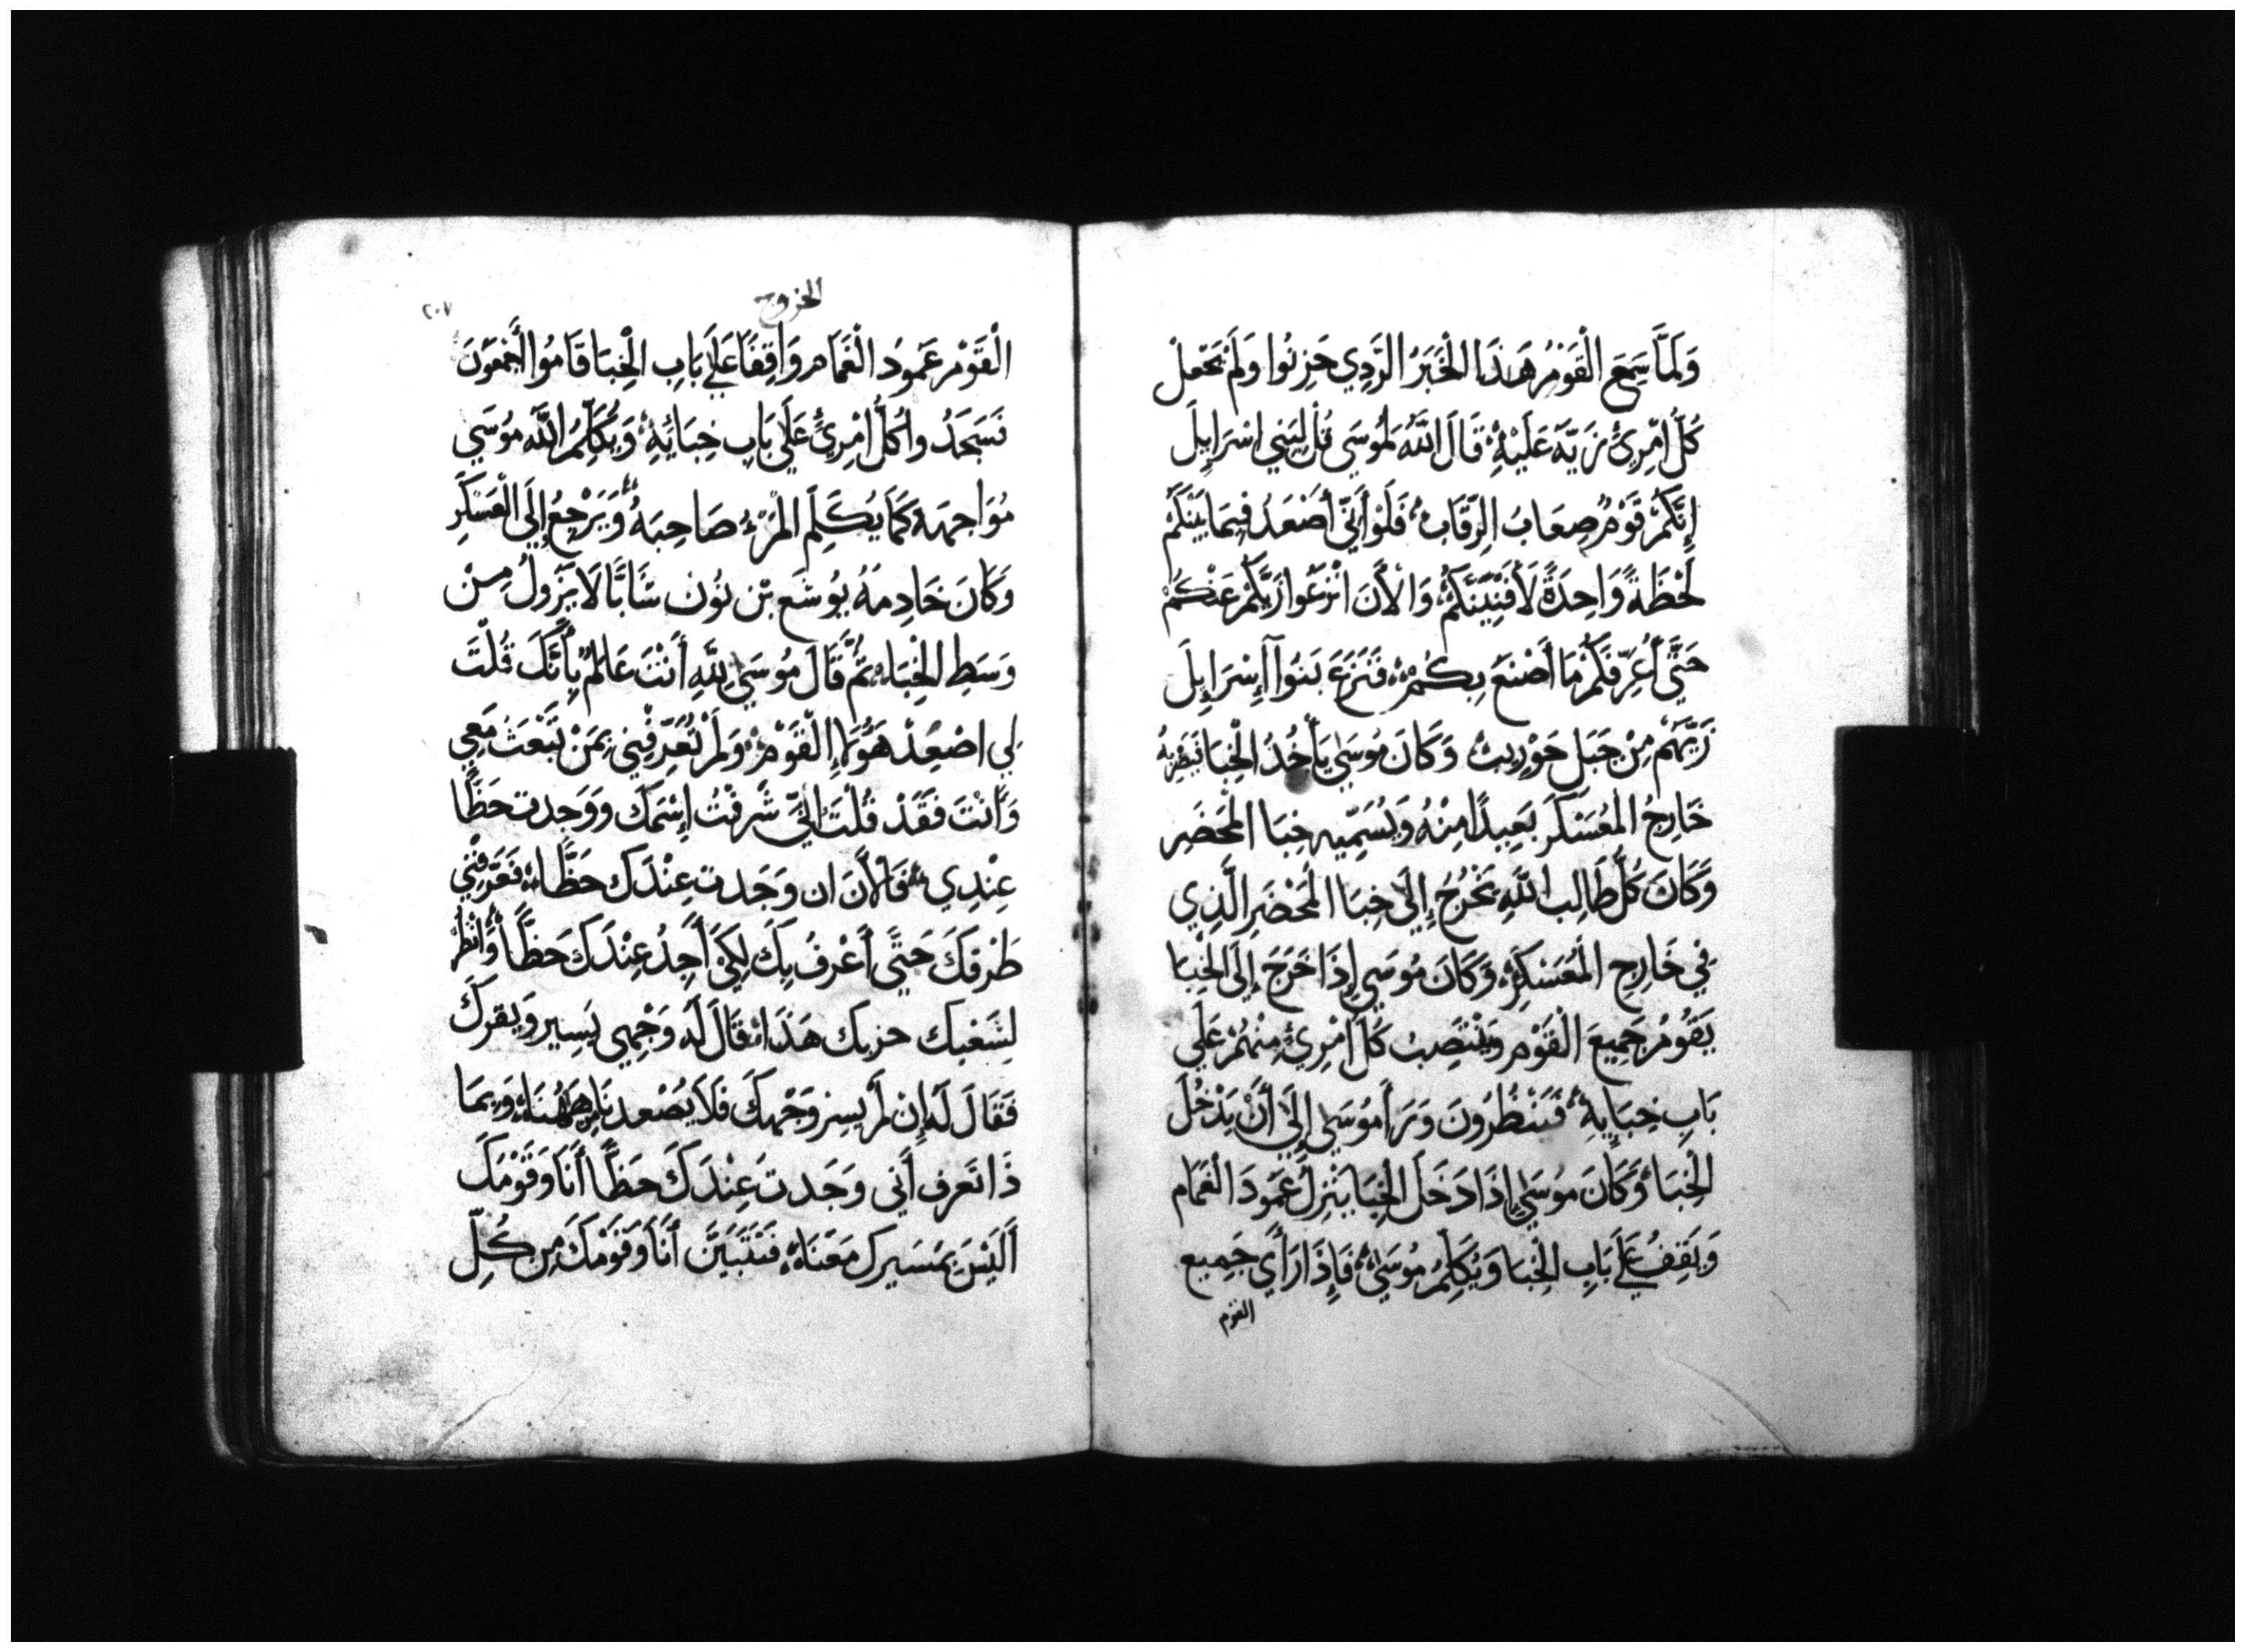 وَلَمَّا سَمِعَ الْقَوْمُ هَذَا الْخَبَرُ الرَّدِي حَزِنُوا وَلَمْ يَجْعَلْ
كُلُّ امْرِئٍ زَيَّهُ عَلَيْهِ قَالَ اللَّهُ لِمُوسَي قُلْ لِبَنِي اسْرَايِلَ
إِنَّكُمْ قَوْمٌ صِعَابُ الرِّقَابِ فَلَوْ أَنِّي أَصْعَدُ فِيمَا بَيْنَكُمْ
لَحْظَةً وَاحِدَةً لَأَفْنَيْتَكُمُ وَالْأَنَ انْزَعُوا زَيَّكُمْ عَنْكُمْ
حَتَّي أُعَرِّفَكُمْ مَا أَصْنَعَ بِكُمْ فَنَزَعَ بَنُوا إِسْرَايِلَ
زَيَّهُمْ مِنْ جَبَلِ حَوْرِيبْ وَكَانَ مُوسَي يَأْخُذُ الْخِبَا
خَارِجُ الْمُعَسْكَرِ بَعِيدًا مِنْهُ وَيُسَمِّيهِ خِبَا الْمَحْضَرِ
وَكَانَ كُلُّ طَالِبِ اللَّهِ يَخْرُجُ إِلَي خِبَا الْمَحْضَرِ الَّذِي
فِي خَارِجِ الْمُعَسْكَرِ وَكَانَ مُوسَي إِذَا خَرَجَ إِلَي الْخِبَا
يَقُومُ جَمِيعَ الْقَوْمِ وَيَنْتَصِبُ كُلَّ امْرِئٍ مِنْهُمْ عَلَي
بَابِ خِبَايِهِ فَيَنْظُرُونَ وَرَأَ مُوسَي إِلَي أَنْ يَدْخُلَ
الْخِبَاءَ وَكَانَ مُوسَي إِذَا دَخَلَ الْخِبَا يَنْزِلُ عَمُودَ الْغَمَام
وَيَقِفُ عَلَي بَابِ الْخِبَا وَيُكَلِّمُ مُوسَي فَإِذَا رَأَي جَمِيع
القوم
الخروج
٢٠٧
الْقَوْمِ عَمُودُ الْغَمَامِ وَاقِفًا عَلَي بَابِ الْخِبَا قَامُوا أَجْمَعُونَ
فَسَجَدُوا كُلُّ امْرِئٍ عَلَي بَابِ خِبَائِهِ وَيُكَلِّمُ اللَّهُ مُوسَي
مُوَاجهَه كَمَا يُكَلِّمَ الْمَرْءُ صَاحِبَهُ وَيَرْجِعُ إِلَي الْعَسْكَرِ
وَكَانَ خَادِمَهُ يُوشَع بْن نُون شَابًّا لَا يَزُولُ مِنْ
وَسَطِ الْخِبَاءِ ثُمَّ قَالَ مُوسَي لِلَّهِ أَنْتَ عَالمٌ بِأَنَّكَ قُلْتَ
لِي اصْعِدْ هَؤُلَاءِ الْقَوْمْ وَلَمْ تُعَرِّفْنِي بِمَنْ تَبْعَثَ مَعِي
وَأَنْتَ فَقَدْ قُلْتَ إِنِّي شَرَفْتُ إِسْمَكَ وَوَجَدت حَظًّا
عِنْدِي فَالْأَنَ ان وَجَدت عِنْدَك حَظًّا فَعَرِّفْنِي
طَرْقكَ حَتَّي أَعْرفُ بِكَ لِكَيْ أَجِدُ عِنْدَكَ حَظًّا وَأَنْظُرْ
لِشَعْبِك حزبك هَذَا قَالَ لَه وَجْهِي يَسِير وَيقرك
فَقَالَ لَه إِن لَمْ يسِر وَجْهكَ فَلَا يُصْعدنَا مِنْ هَهُنَا وَبِمَا
ذَا تَعرف أَني وَجَدتَ عِنْدَكَ حَظًّا أَنَا وَقَوْمكَ
أَلَيْسَ بِمَسَيرك مَعَنَا فَتَتَبَيَّن أَنَا وَقَوْمكَ مِن كُلِّ